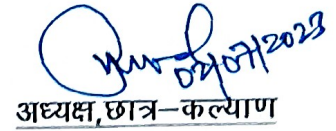 07/2023
अध्यक्ष,छात्र–कल्याण